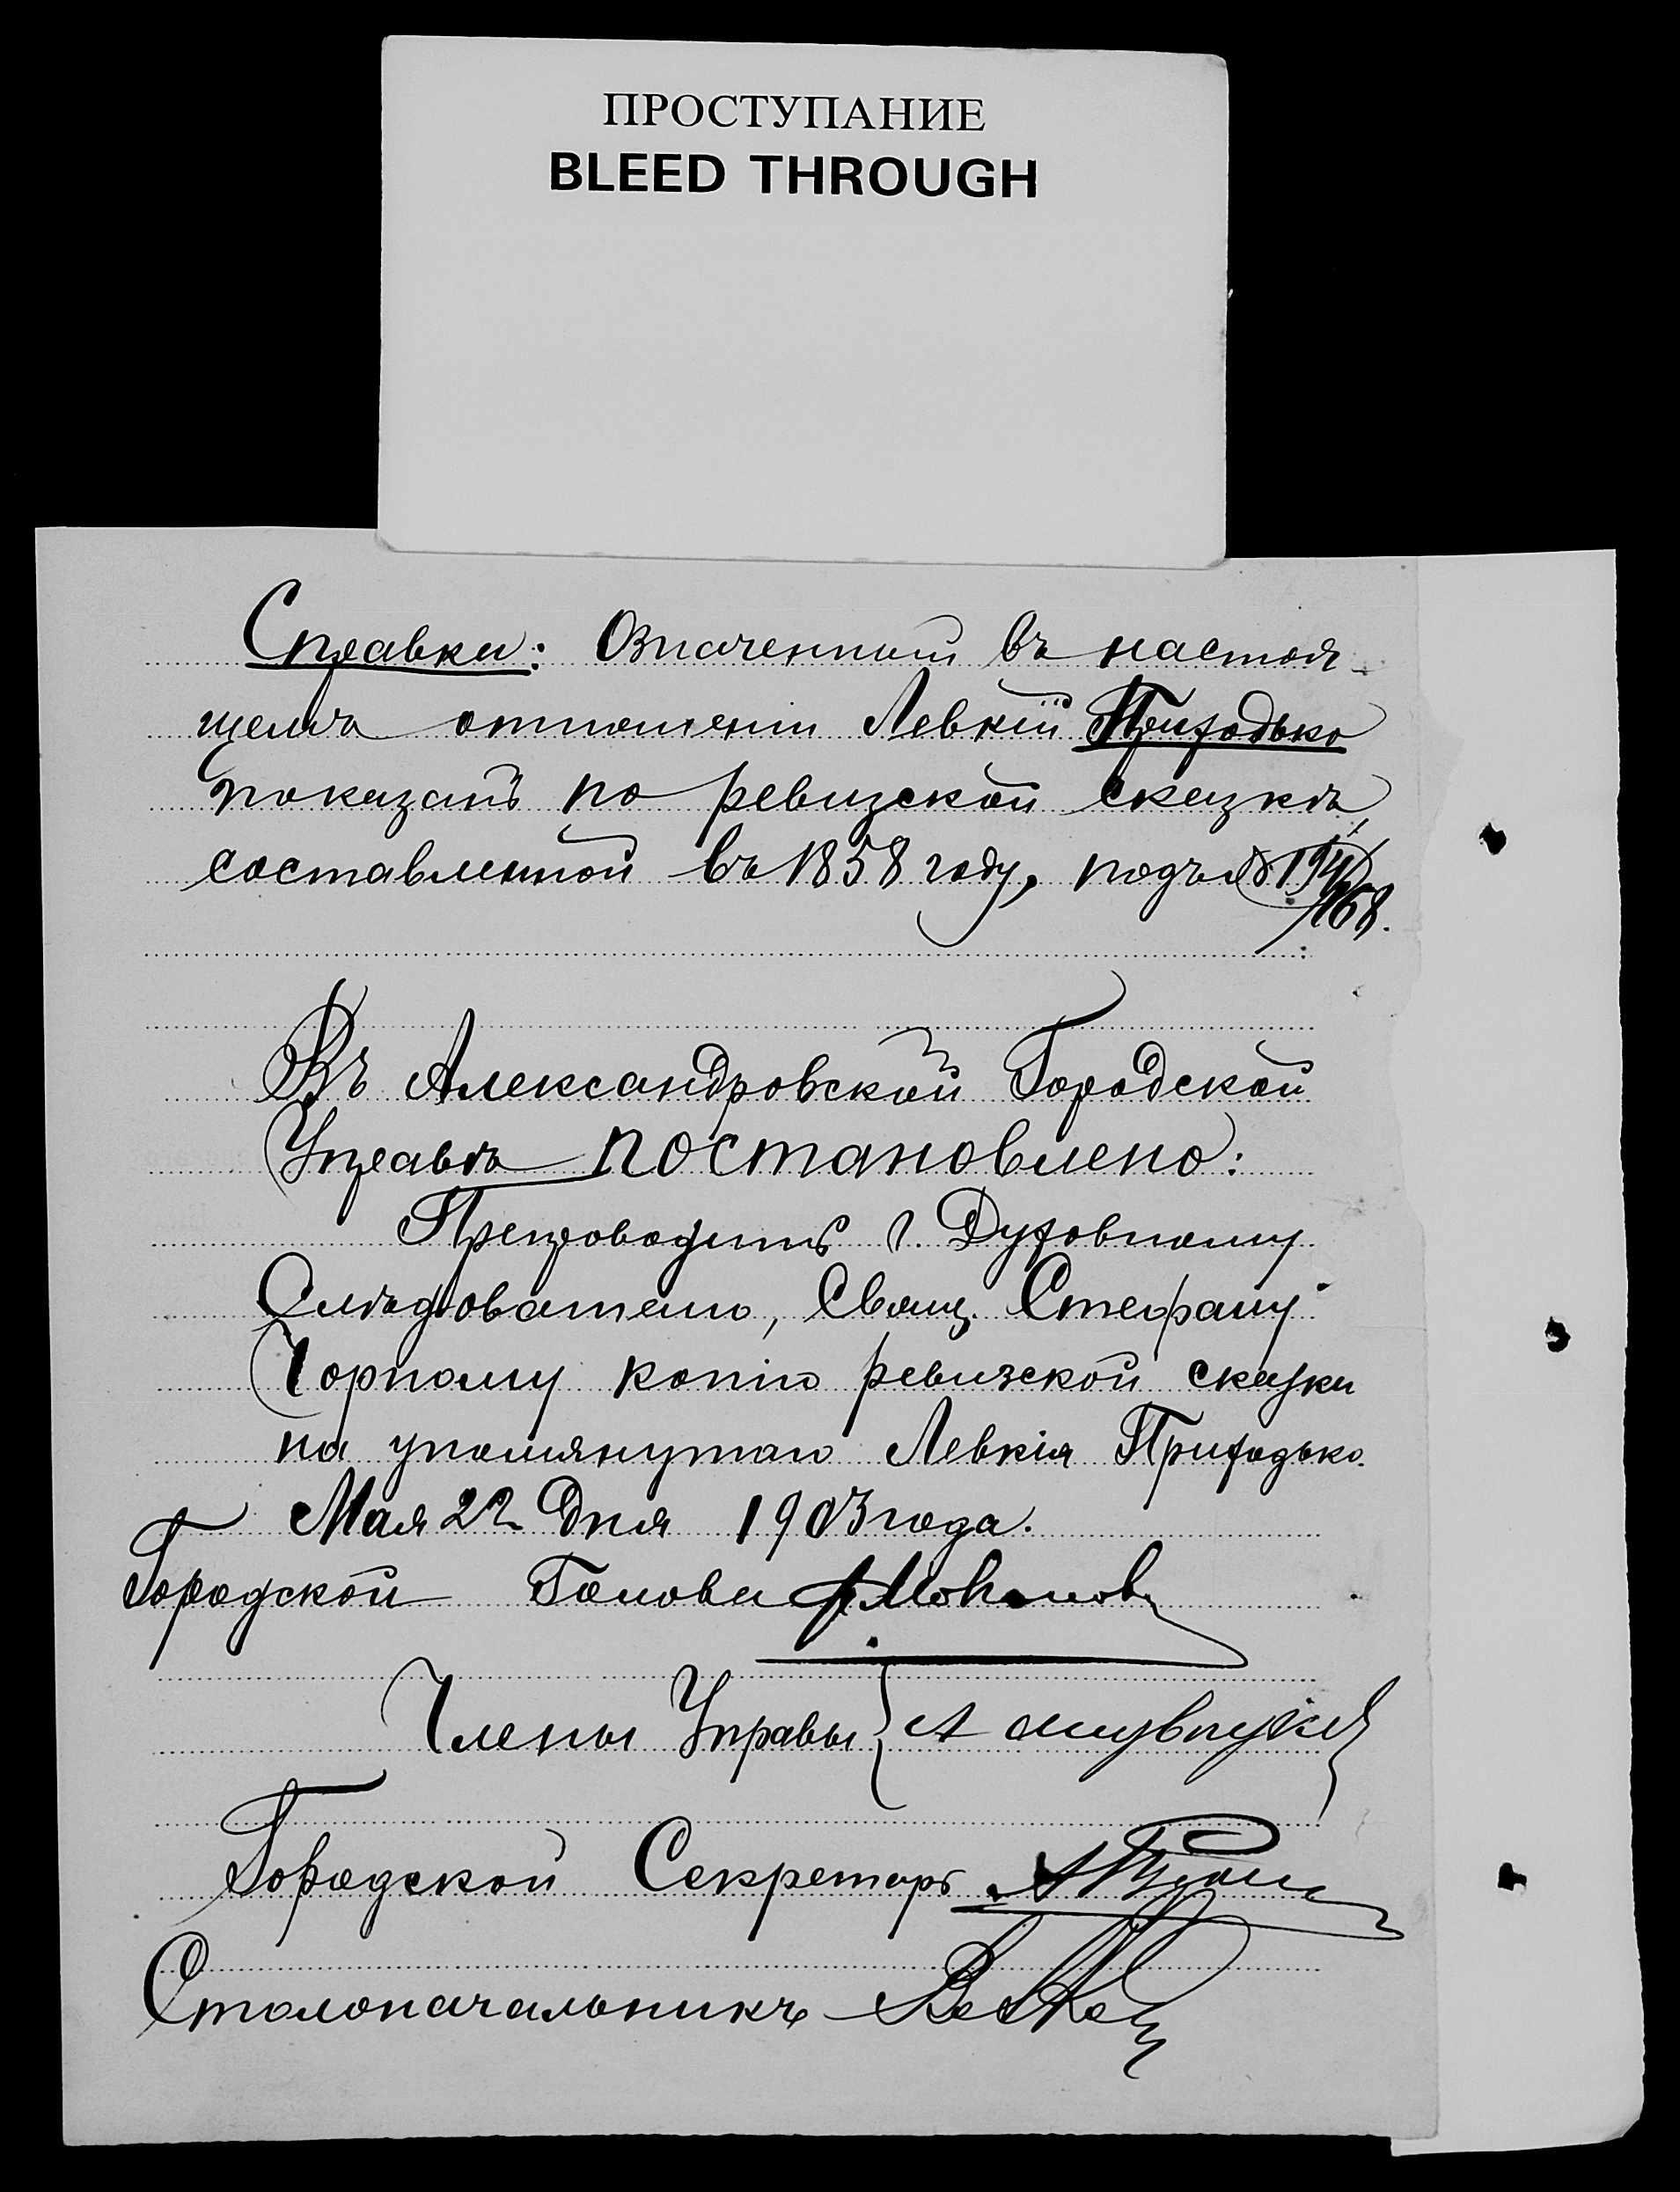 ПРОСТУПАНИЕ
BLEED THROUGH
Справка: Означенный въ настоя-
щемъ отношеніи Левкій Приходько
показанъ по ревизской сказкѣ,
составленной въ 1858 году, подъ №
168.
Въ Александровской Городской
Управѣ постановлено:
Препроводить г. Духовному
Слѣдователю, Свящ. Стефану
Чорному копію ревизской сказки
на упомянутаго Левкія Приходько.
Мая 22 дня 1903 года.
Городской Голова
Члены Управы
Городской Секретарь
Столоначальникъ